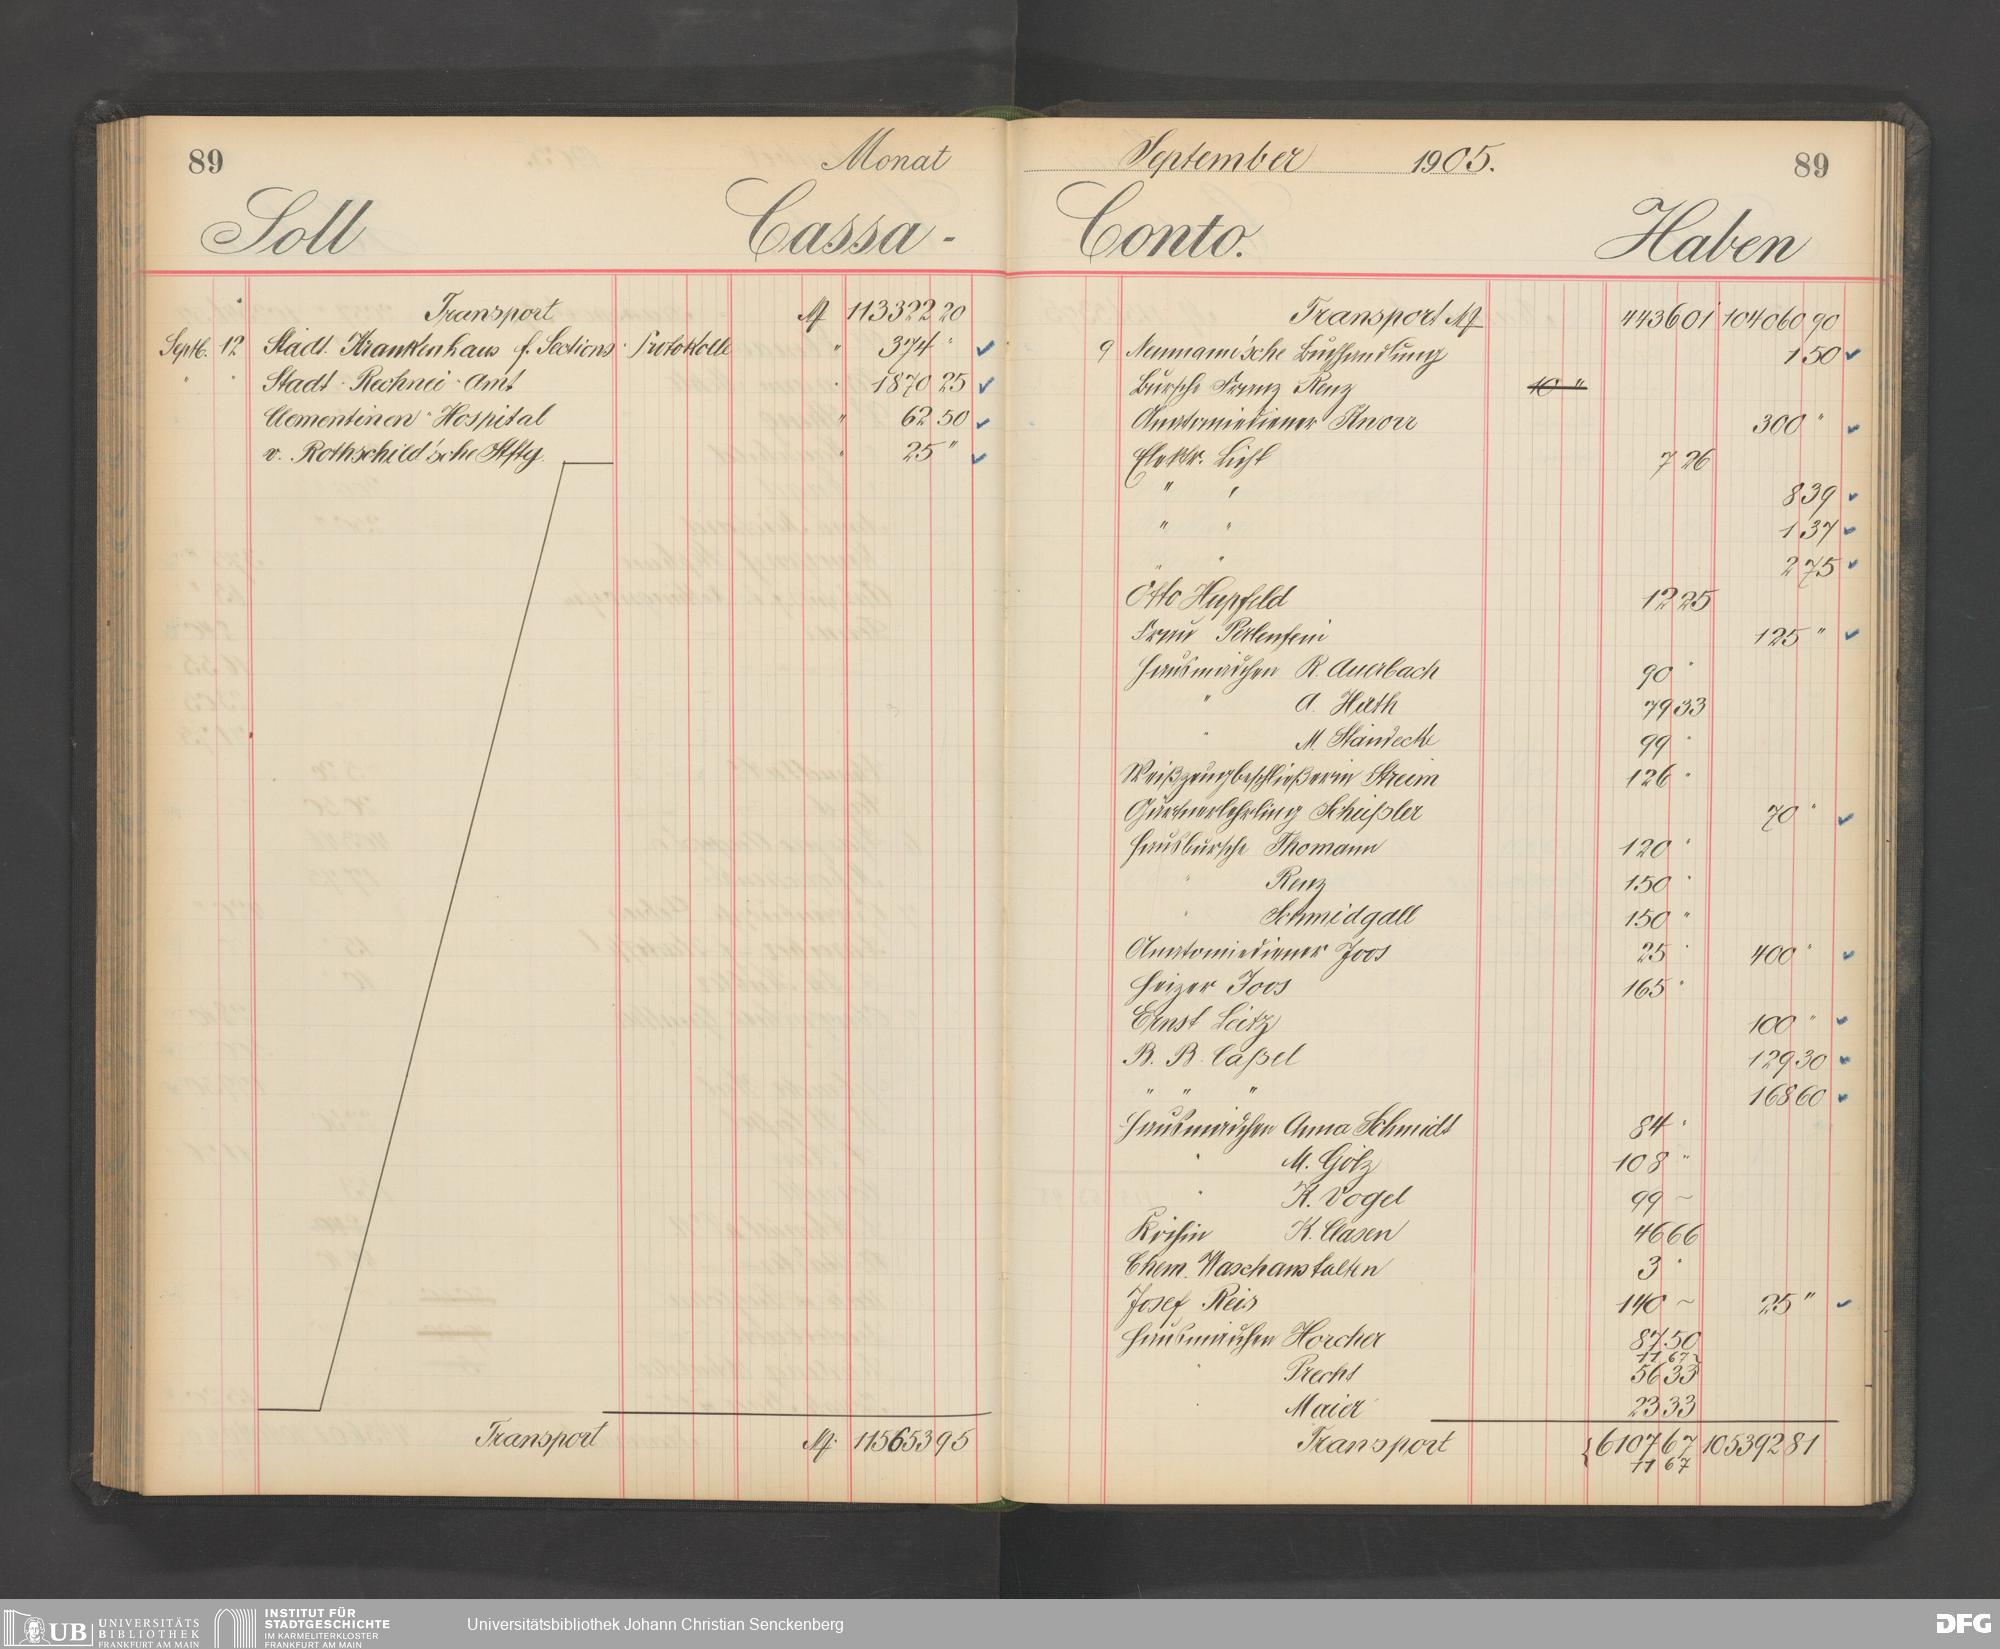 89 Monat
Soll Cassa-
Transport M 113322 20
Septb. 12 Städt. Krankenhaus f. Sections-Protokolle " 374 "
" " Stadt-Rechnei-Amt " 1870 25
Clementinen-Hospital " 62 50
v. Rothschild'sche Stftg. " 25 "
Transport M 115653 95
September 1905. 89
Conto. Haben
Transport M 4436 01 104060 90
9 Neumann'sche Buchhandlung 1 50
Bursche Franz Renz 10 "
Anatomiediener Knorr 300 "
Elektr. Licht 7 26
" " 8 39
" " 1 37
" " 2 75
Otto Hupfeld 12 25
Frau Perlenfein 125 "
Hausmädchen R. Auerbach 90 "
" A. Härth 79 33
" M. Standecke 99 "
Weißzeugbeschließerin Streim 126 "
Gärtnerlehrling Schüßler 70 "
Hausbursche Thomann 120 "
" Renz 150 "
" Schmidgall 150 "
Anatomiediener Joos 25 " 400 "
Heizer Joos 165 "
Ernst Leitz 100 "
B. B. Caßel 129 30
" " " 168 60
Hausmädchen Anna Schmidt 84 "
" M. Götz 108 "
" K. Vogel 99 ~
Köchin K. Clasen 46 66
Chem. Waschanstalten 3 "
Josef Reis 140 ~ 25 "
Hausmädchen Horcher 87 50
11 67
" Precht 56 33
" Maier 23 33
Transport { 6107 67 105392 81
11 67
UB UNIVERSITÄTS
BIBLIOTHEK
FRANKFURT AM MAIN
INSTITUT FÜR
STADTGESCHICHTE
IM KARMELITERKLOSTER
FRANKFURT AM MAIN
Universitätsbibliothek Johann Christian Senckenberg
DFG